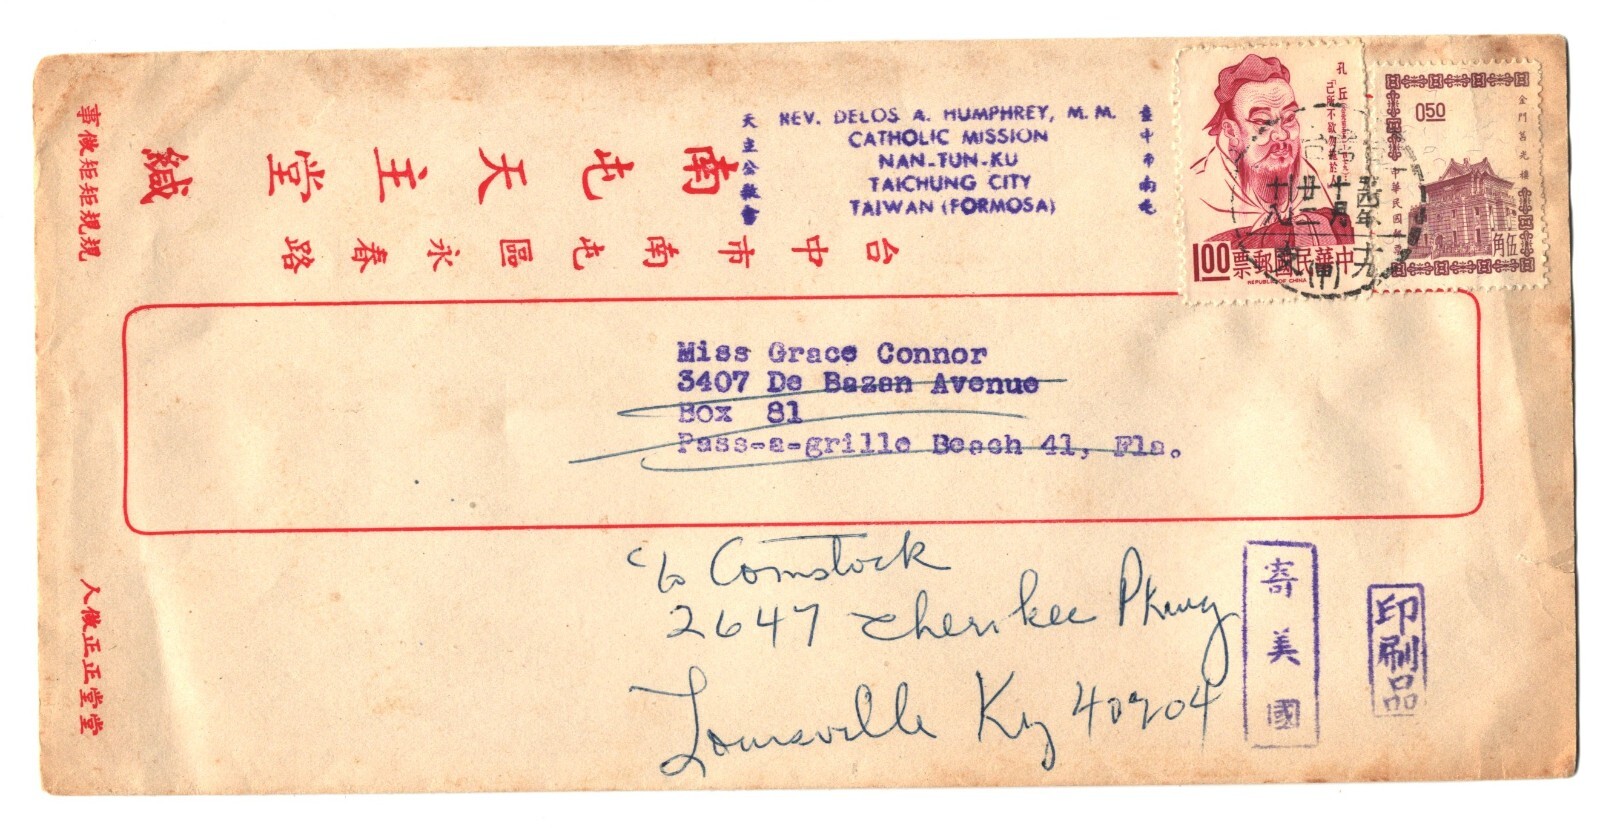 事做矩矩規規
人做正正堂堂
南屯天主堂緘
台中市南屯區永春路
REV. DELOS A. HUMPHREY, M. M.
CATHOLIC MISSION
NAN-TUN-KU
TAICHUNG CITY
TAIWAN (FORMOSA)
天主公教會
臺中市南屯
孔丘
己所不欲勿施於人
1.00
中華民國郵票
REPUBLIC OF CHINA
0.50
金門莒光樓
中華民國郵票
伍角
Miss Grace Connor
3407 De Bazan Avenue
Box 81
Pass-a-grille Beach 41, Fla.
c/o Comstock
2647 Cherokee Pkwy
Louisville Ky 40204
寄美國
印刷品